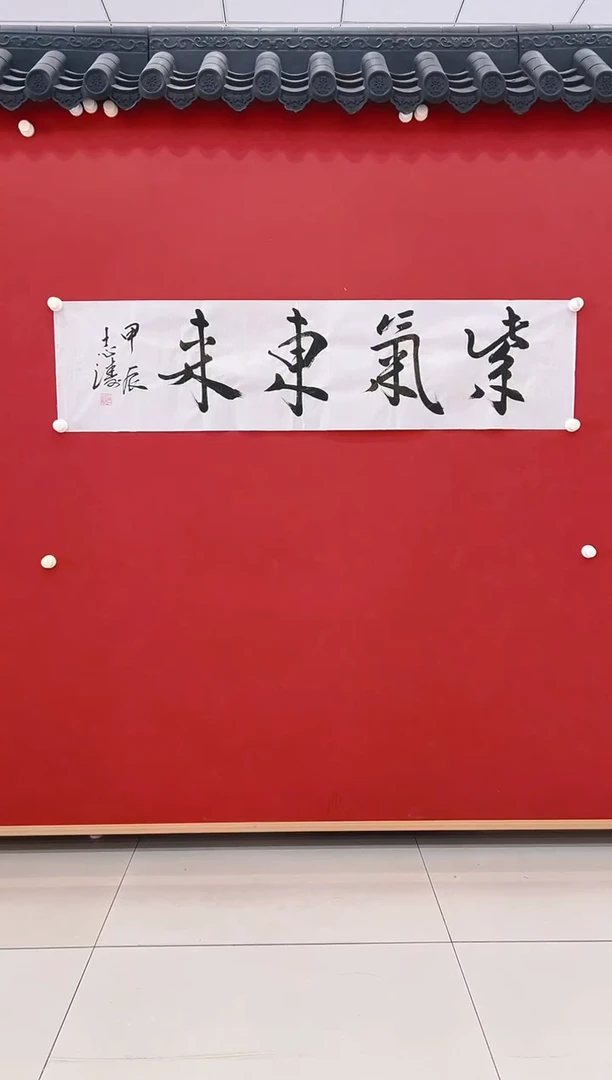 紫氣東来
甲辰
志濤